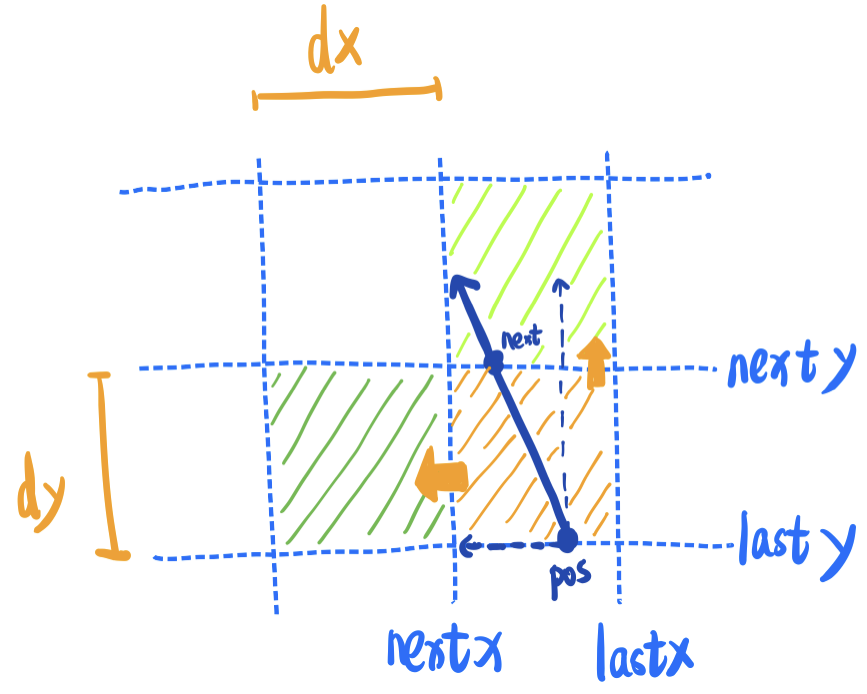 dx
next
next y
dy
last y
pos
next x
last x